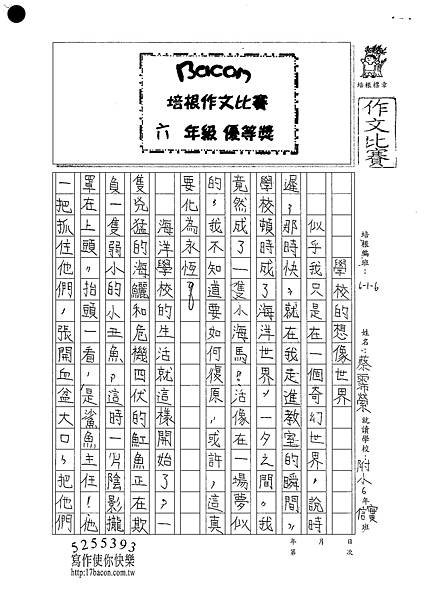 Bacon
培根作文比賽
六 年級 優等獎
培根標章
作文比賽
培根編班：6-1-6
姓名：蔡霈縈 就讀學校：附小6年信實班
學校的想像世界
似乎我只是在一個奇幻世界，說時
遲，那時快，就在我走進教室的瞬間，
學校頓時成了海洋世界，一夕之間，我
竟然成了一隻小海馬？活像在一場夢似
的，我不知道要如何復原，或許，這真
要化為永恆吧
海洋學校的生活就這樣開始了？一
隻兇猛的海鱺和危機四伏的魟魚正在欺
負一隻弱小的小丑魚？這時一片陰影攏
罩在上頭，抬頭一看，是鯊魚主任！他
一把抓住他們，張開血盆大口，把他們
年 月 日
第 次
5255393
寫作使你快樂
http:17bacon.com.tw